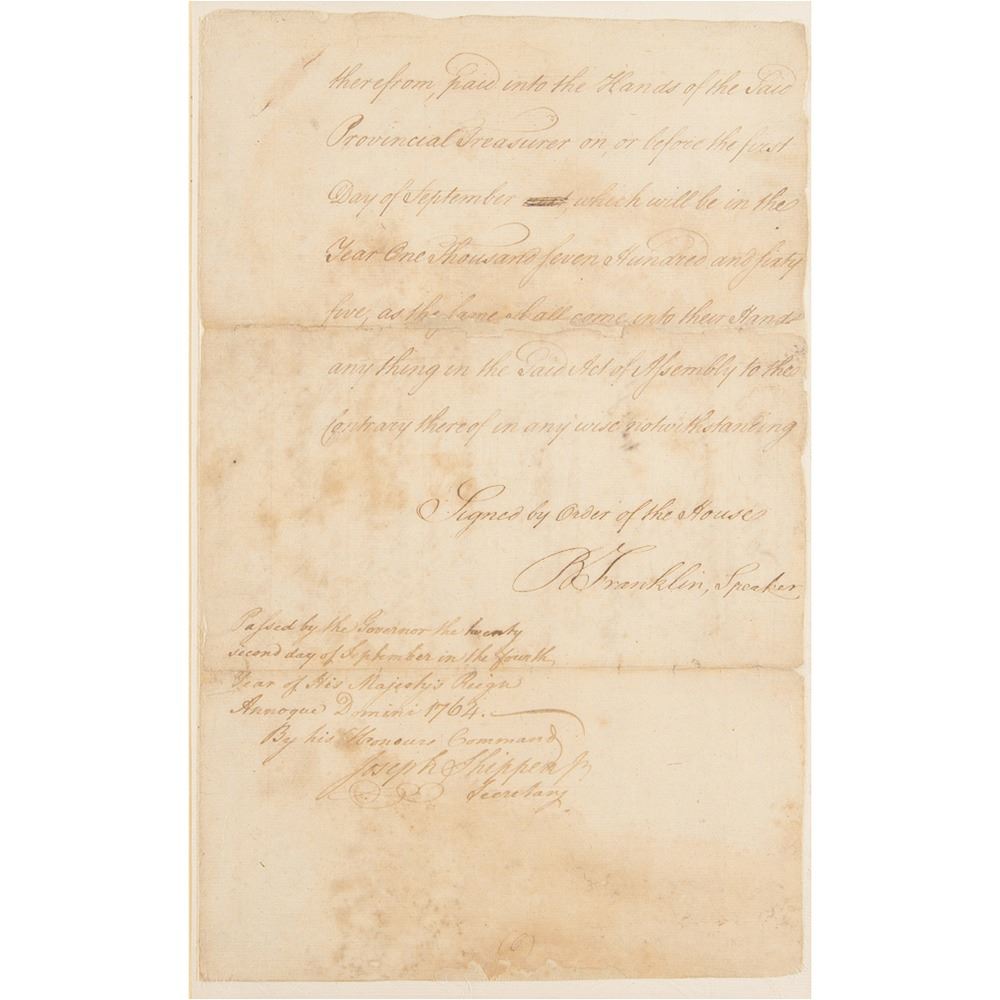 therefrom, paid into the Hands of the Said
Provincial Treasurer on, or before the first
Day of September which will be in the
Year One Thousand Seven Hundred and sixty
five, as the same shall come into their Hands
any thing in the Said Act of Assembly to the
Contrary thereof in any wise notwithstanding
Signed by Order of the House
B Franklin, Speaker
Passed by the Governor the twenty
second day of September in the fourth
Year of His Majesty's Reign
Annoque Domini 1764.
By his Honours Command
Joseph Shippen Jr
Secretary